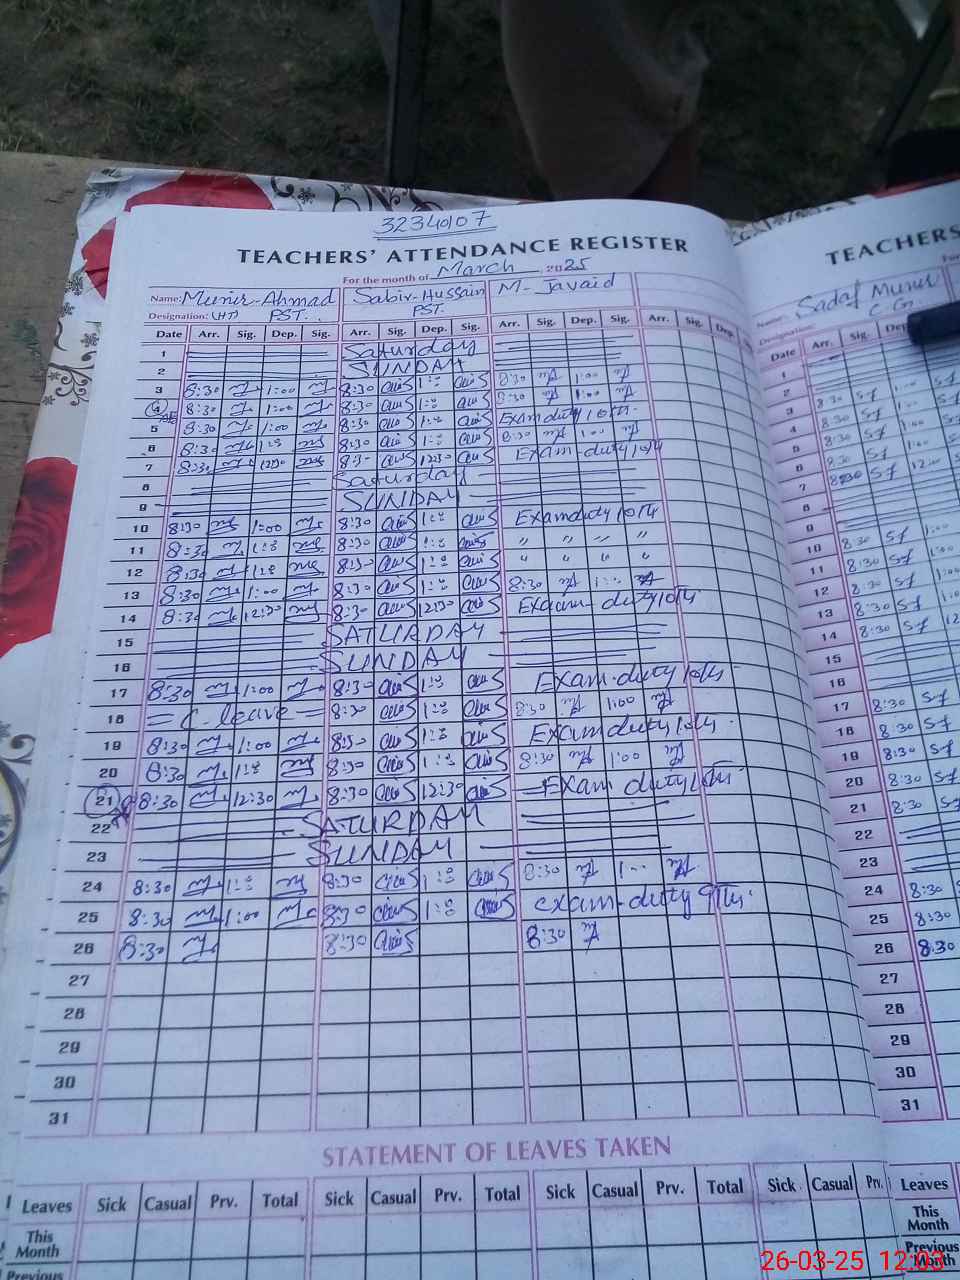 32340107
TEACHERS' ATTENDANCE REGISTER
For the month of March 2025
Name: Munir-Ahmad Sabir-Hussain M-Javaid
Designation: (HT) PST. PST.
Date Arr. Sig. Dep. Sig. Arr. Sig. Dep. Sig. Arr. Sig. Dep. Sig. Arr. Sig. Dep.
1 Saturday
2 SUNDAY
3 8:30 1:00 8:30 1:00 8:30 1:00
4 8:30 1:00 8:30 1:00 8:30 1:00
5 8:30 1:00 8:30 1:00 Exam duty 10th.
6 8:30 1:00 8:30 1:00 8:30 1:00
7 8:30 12:30 8:30 12:30 Exam-duty 10th
8 Saturday
9 SUNDAY
10 8:30 1:00 8:30 1:00 Exam duty 10th
11 8:30 1:00 8:30 1:00 " " " "
12 8:30 1:00 8:30 1:00 " " " "
13 8:30 1:00 8:30 1:00 8:30 1:00
14 8:30 12:30 8:30 12:30 Exam-duty 10th.
15 SATURDAY
16 SUNDAY
17 8:30 1:00 8:30 1:00 Exam.duty 10th
18 = C-leave = 8:30 1:00 8:30 1:00
19 8:30 1:00 8:30 1:00 Exam duty 10th.
20 8:30 1:00 8:30 1:00 8:30 1:00
21 8:30 12:30 8:30 12:30 Exam duty 10th.
22 SATURDAY
23 SUNDAY
24 8:30 1:00 8:30 1:00 8:30 1:00
25 8:30 1:00 8:30 1:00 exam-duty 9th.
26 8:30 8:30 8:30
27
28
29
30
31
STATEMENT OF LEAVES TAKEN
Leaves Sick Casual Prv. Total Sick Casual Prv. Total Sick Casual Prv. Total Sick Casual Prv.
This Month
Previous
TEACHERS
Name: Sadaf Munir
Designation:
Date Arr. Sig. Dep
1
2
3 8:30 1:00
4 8:30 1:00
5 8:30 1:00
6 8:30 1:00
7 8:30 12:30
8
9
10 8:30 1:00
11 8:30 1:00
12 8:30 1:00
13 8:30
14 8:30 12
15
16
17 8:30
18 8:30
19 8:30
20 8:30
21 8:30
22
23
24 8:30
25 8:30
26 8:30
27
28
29
30
31
Leaves
This Month
Previous Month
26-03-25 12:03